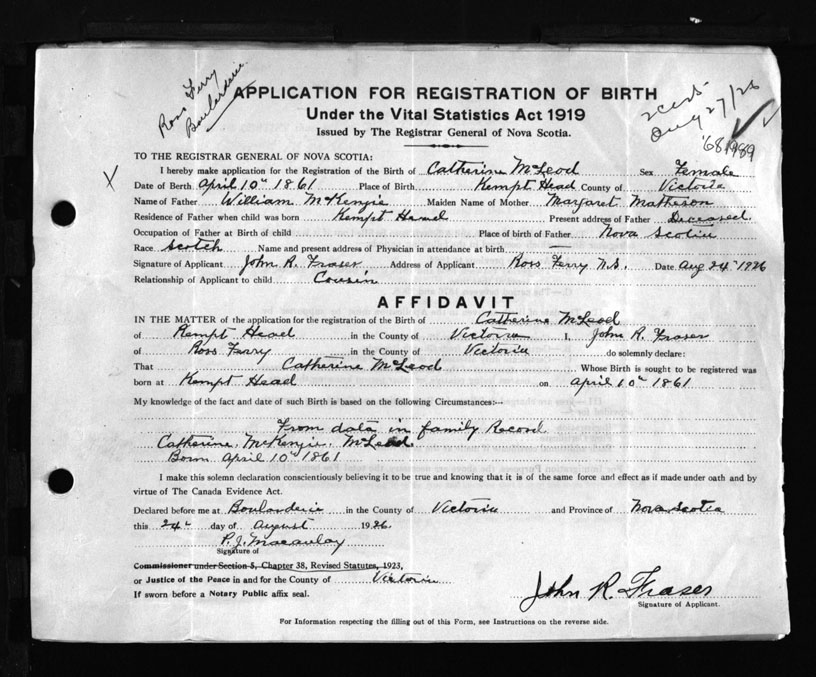 Ross Ferry
Boularderie
APPLICATION FOR REGISTRATION OF BIRTH
Under the Vital Statistics Act 1919
Issued by The Registrar General of Nova Scotia.
Aug 27/26
TO THE REGISTRAR GENERAL OF NOVA SCOTIA:
I hereby make application for the Registration of the Birth of Catherine McLeod Sex Female
Date of Birth April 10th 1861 Place of Birth Kempt Head County of Victoria
Name of Father William McKenzie Maiden Name of Mother Margaret Matheson
Residence of Father when child was born Kempt Head Present address of Father Deceased
Occupation of Father at Birth of child Place of birth of Father Nova Scotia
Race Scotch Name and present address of Physician in attendance at birth —
Signature of Applicant John R. Fraser Address of Applicant Ross Ferry N.S. Date Aug 24th 1926
Relationship of Applicant to child Cousin
AFFIDAVIT
IN THE MATTER of the application for the registration of the Birth of Catherine McLeod
of Kempt Head in the County of Victoria I, John R. Fraser
of Ross Ferry in the County of Victoria do solemnly declare:
That Catherine McLeod Whose Birth is sought to be registered was
born at Kempt Head on April 10th 1861
My knowledge of the fact and date of such Birth is based on the following Circumstances:--
From data in family Record
Catherine McKenzie McLeod
Born April 10th 1861
I make this solemn declaration conscientiously believing it to be true and knowing that it is of the same force and effect as if made under oath and by
virtue of The Canada Evidence Act.
Declared before me at Boularderie in the County of Victoria and Province of Nova Scotia
this 24th day of August 1926.
P. J. Macaulay
Signature of
Commissioner under Section 5, Chapter 38, Revised Statutes, 1923,
or Justice of the Peace in and for the County of Victoria
If sworn before a Notary Public affix seal.
John R Fraser
Signature of Applicant.
For Information respecting the filling out of this Form, see Instructions on the reverse side.